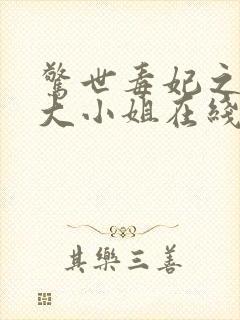 驚世毒妃之
大小姐在綫
其樂三善